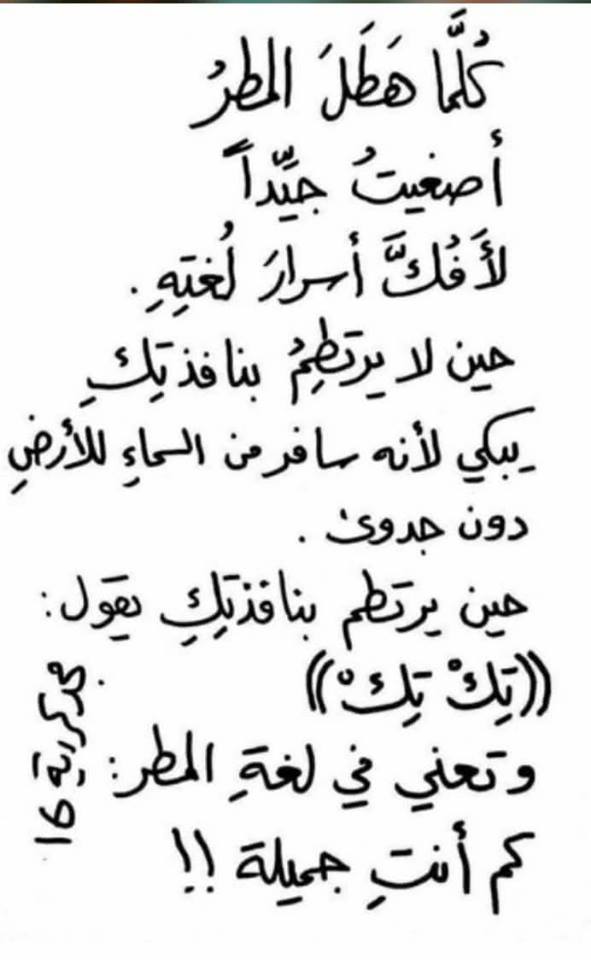 كُلَّما هَطَلَ المطرُ
أصغيتُ جيِّداً
لأَفُكَّ أسرارَ لُغتِهِ.
حين لا يرتطِمُ بنافذتِكِ
يبكي لأنه سافر من السماءِ للأرضِ
دون جدوى .
حين يرتطم بنافذتِكِ يقول:
((تِكْ تِكْ))
وتعني في لغةِ المطر:
كم أنتِ جميلة !!